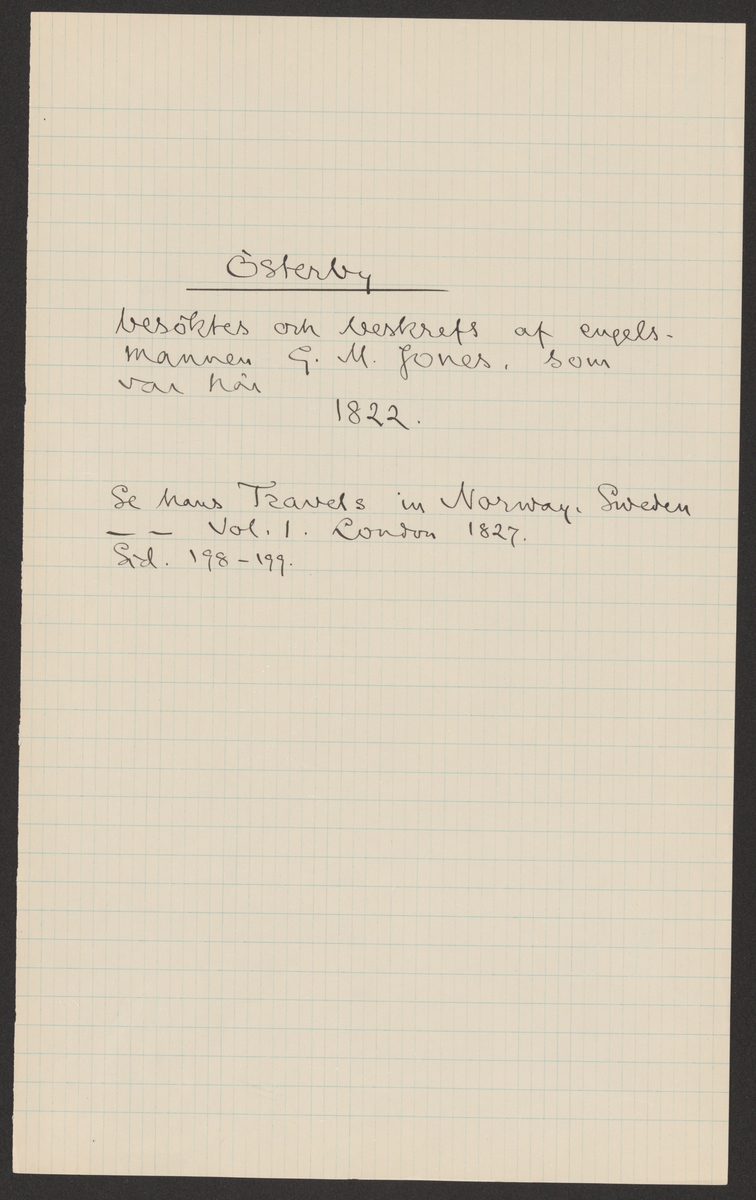 Österby
besöktes och beskrefs af engels-
mannen G. M. Jones, som
var här
1822.
Se hans Travels in Norway, Sweden
— — Vol. 1. London 1827.
Sid. 198-199.